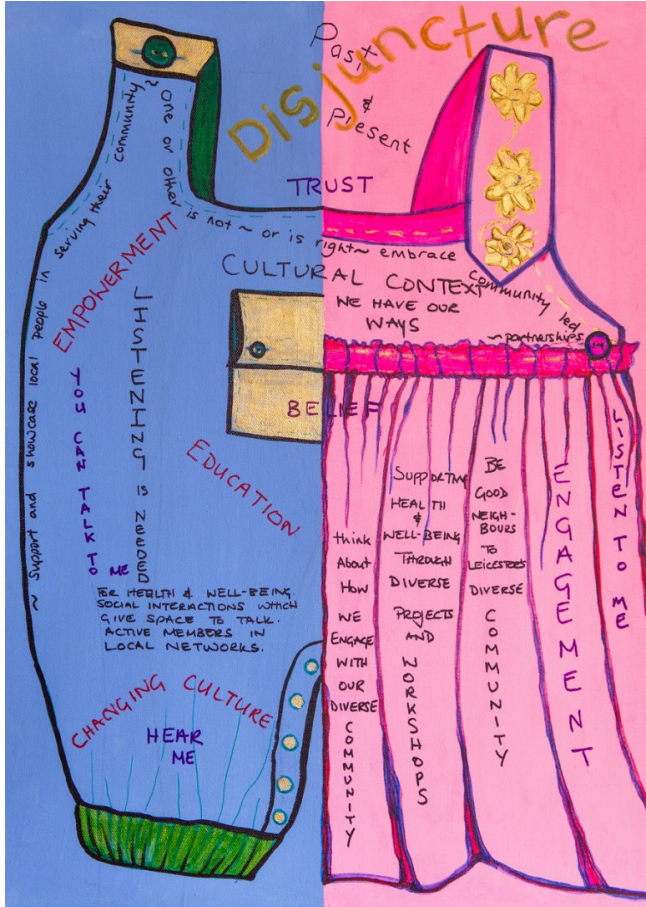 Disjuncture
Past
&
Present
TRUST
~ Support and showcase local people in serving their community ~
one or other is not ~ or is right ~ embrace community led
~ partnerships
CULTURAL CONTEXT
WE HAVE OUR
WAYS
EMPOWERMENT
LISTENING IS NEEDED
YOU CAN TALK TO ME
BELIEF
EDUCATION
FOR HEALTH & WELL-BEING.
SOCIAL INTERACTIONS WHICH
GIVE SPACE TO TALK.
ACTIVE MEMBERS IN
LOCAL NETWORKS.
CHANGING CULTURE
HEAR
ME
think
About
How
WE
ENGAGE
WITH
OUR
DIVERSE
COMMUNITY
SUPPORTING
HEALTH
&
WELL-BEING
THROUGH
DIVERSE
PROJECTS
AND
WORKSHOPS
BE
GOOD
NEIGH-
BOURS
TO
LEICESTERS
DIVERSE
COMMUNITY
ENGAGEMENT
LISTEN TO ME